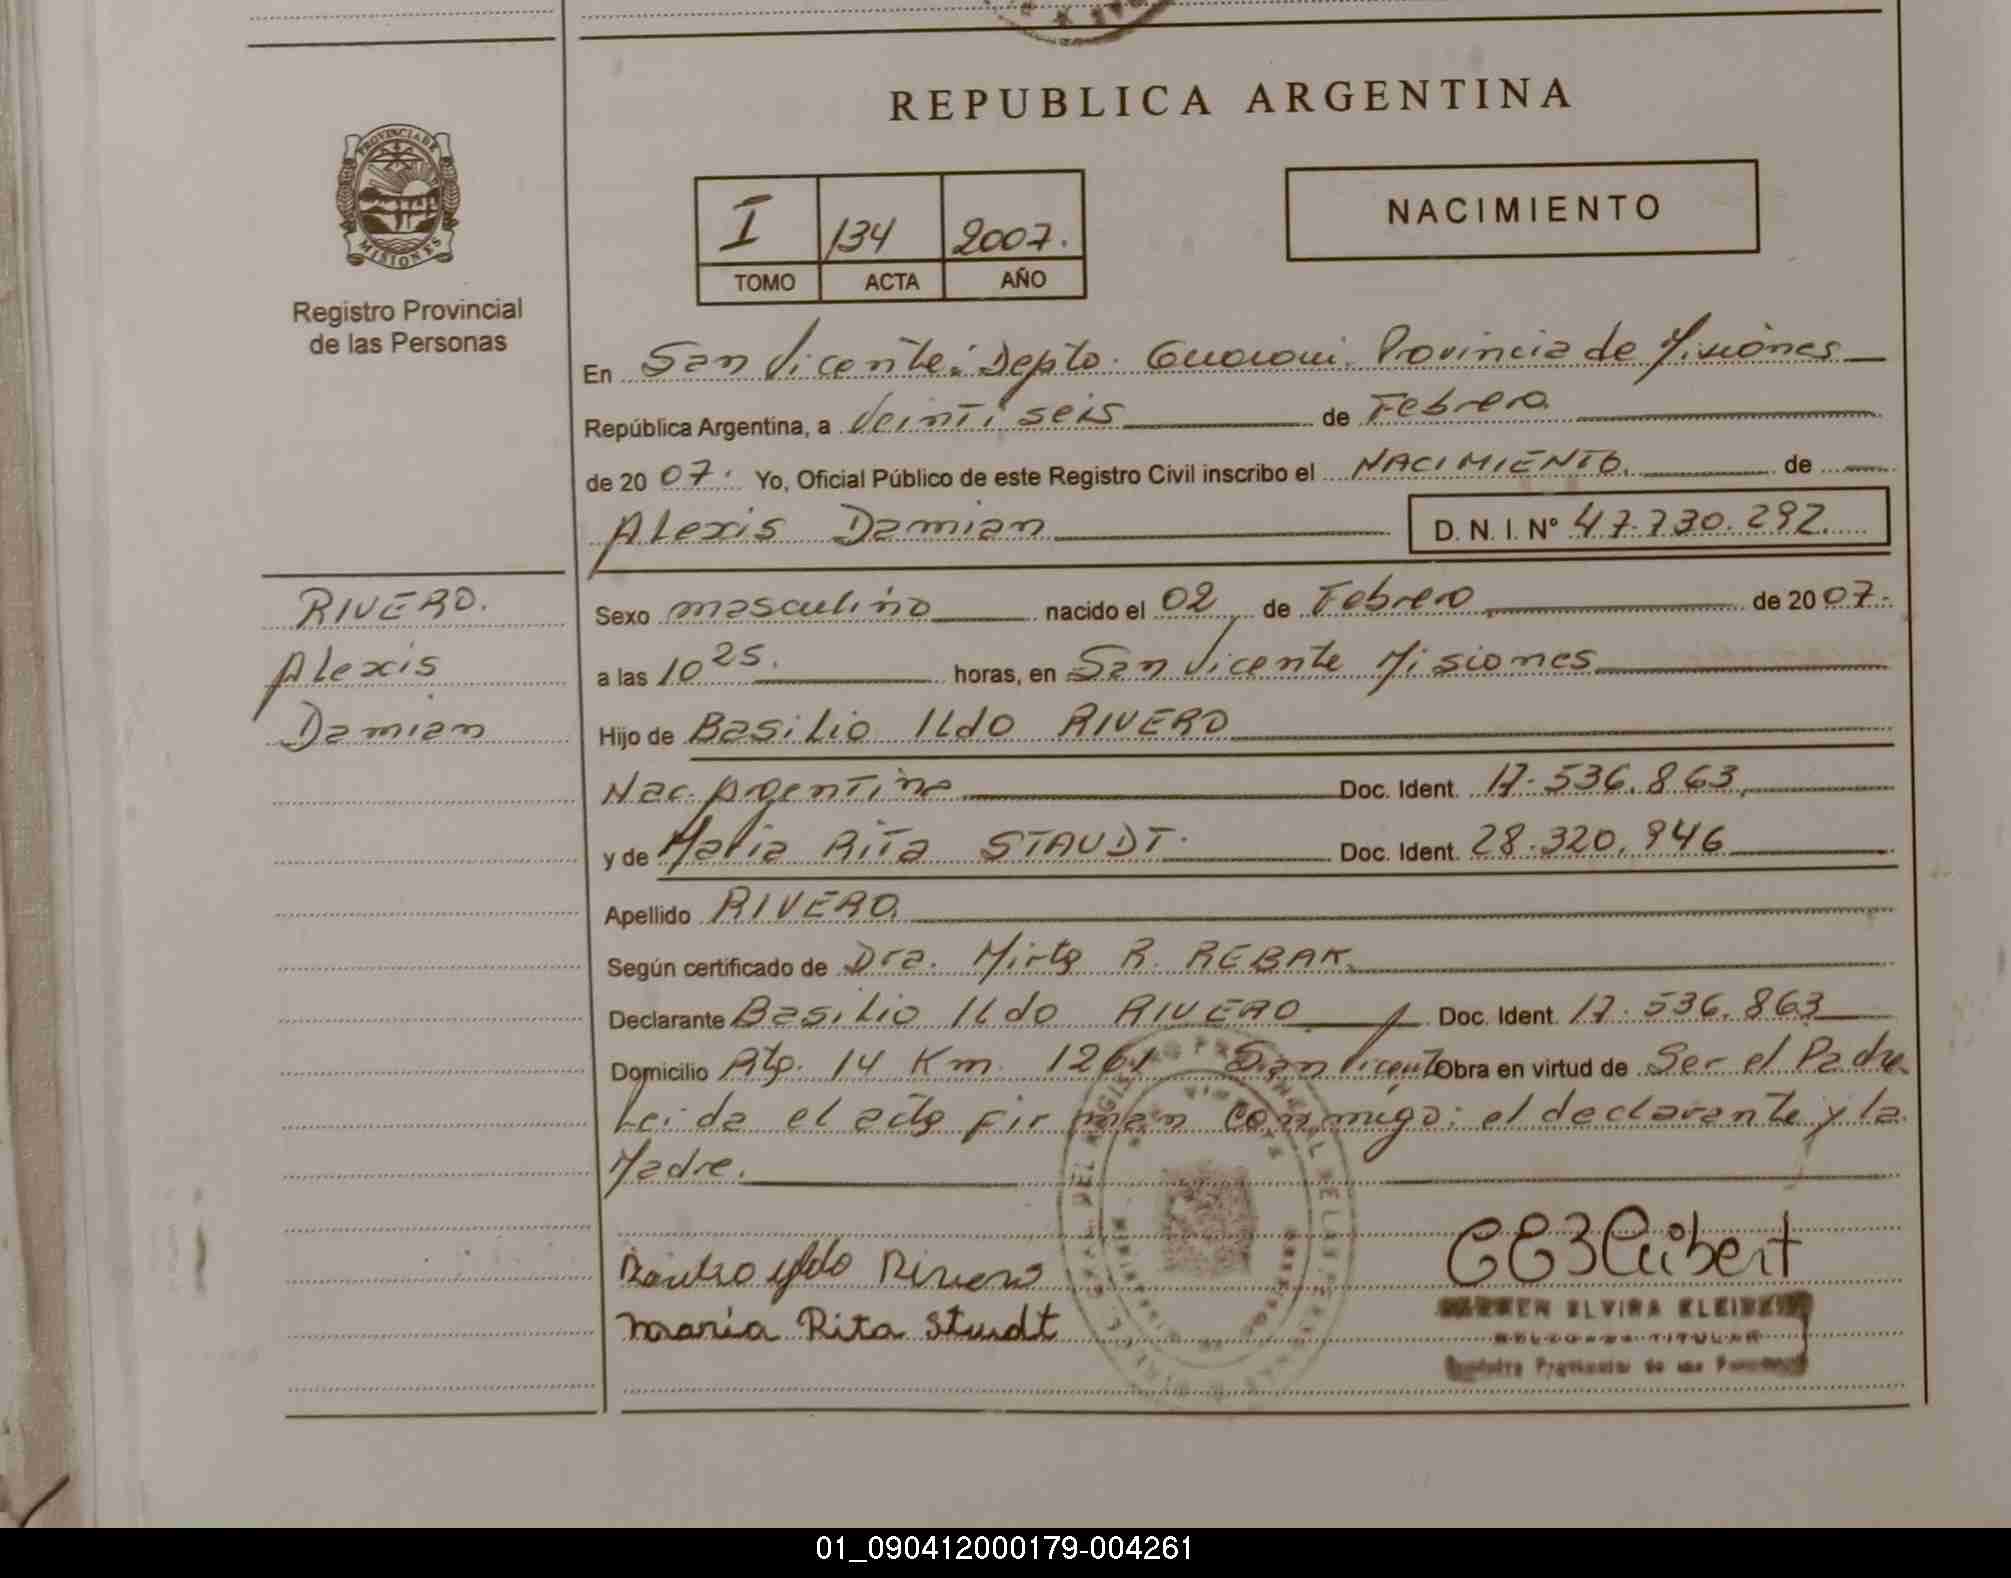 REPUBLICA ARGENTINA
PROVINCIA DE
MISIONES
Registro Provincial
de las Personas
I 134 2007.
TOMO ACTA AÑO
NACIMIENTO
En San Vicente: Depto. Guarani. Provincia de Misiones
República Argentina, a Veinti seis de Febrero
de 20 07. Yo, Oficial Público de este Registro Civil inscribo el NACIMIENTO. de
Alexis Damian D. N. I. Nº 47.730.292.
RIVERO.
Alexis
Damian
Sexo masculino nacido el 02 de Febrero de 20 07.
a las 10 25. horas, en San Vicente Misiones
Hijo de Basilio Ildo RIVERO
Nac. Argentina Doc. Ident. 17.536.863,
y de Maria Rita STAUDT. Doc. Ident. 28.320.946
Apellido RIVERO
Según certificado de Dra. Mirta R. REBAK.
Declarante Basilio Ildo RIVERO Doc. Ident. 17.536.863
Domicilio Rta. 14 Km. 1261 San Vicente Obra en virtud de Ser el Padre
Leida el acta firman conmigo: el declarante y la
Madre.
Rivero
maria Rita Studt
ELVIRA
TITULAR
01_090412000179-004261